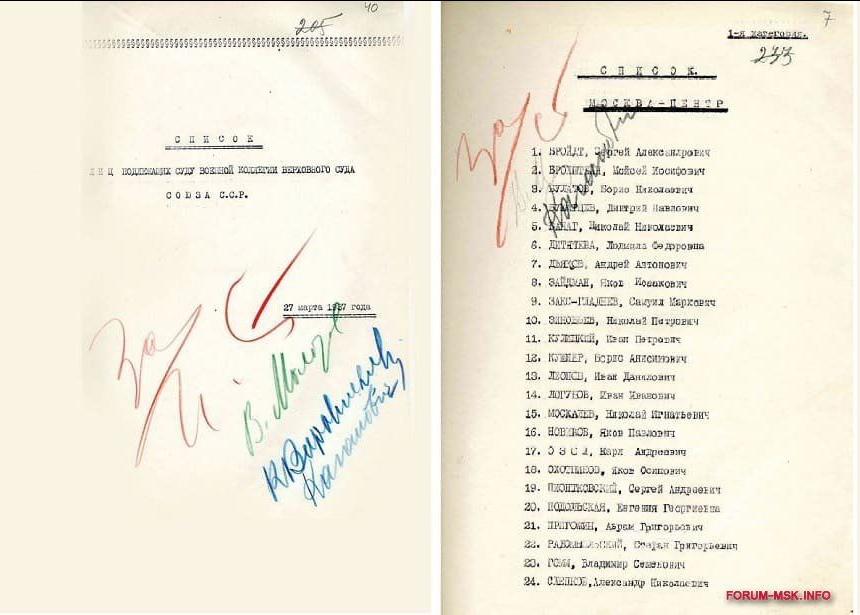 40
205
СПИСОК
ЛИЦ ПОДЛЕЖАЩИХ СУДУ ВОЕННОЙ КОЛЛЕГИИ ВЕРХОВНОГО СУДА
СОЮЗА С.С.Р.
27 марта 1937 года
За
И Ст
В. Молотов
К Ворошилов
Каганович
7
1-я категория.
233
СПИСОК.
МОСКВА-ЦЕНТР
За
Каганович
1. БРОЙДТ, Сергей Александрович
2. Моисей Иосифович
3. БУЛАТОВ, Борис Николаевич
4. Дмитрий Павлович
5. Николай Николаевич
6. ДИТЯТЕВА, Людмила Федоровна
7. ДЬЯКОВ, Андрей Антонович
8. ЗАЙДМАН, Яков Исаакович
9. ЗАКС-ГЛАДНЕВ, Самуил Маркович
10. ЗИНОВЬЕВ, Николай Петрович
11. КУЛИЦКИЙ, Иван Петрович
12. КУШНЕР, Борис Анисимович
13. ЛЕОНОВ, Иван Данилович
14. ЛОГУНОВ, Иван Иванович
15. МОСКАЛЕВ, Николай Игнатьевич
16. НОВИКОВ, Яков Павлович
17. Карл Андреевич
18. ОХОТНИКОВ, Яков Осипович
19. ПИОНТКОВСКИЙ, Сергей Андреевич
20. ПОДОЛЬСКАЯ, Евгения Георгиевна
21. ПРИГОЖИН, Абрам Григорьевич
22. Григорьевич
23. Владимир Семенович
24. СЛЕПКОВ,Александр Николаевич
FORUM-MSK.INFO